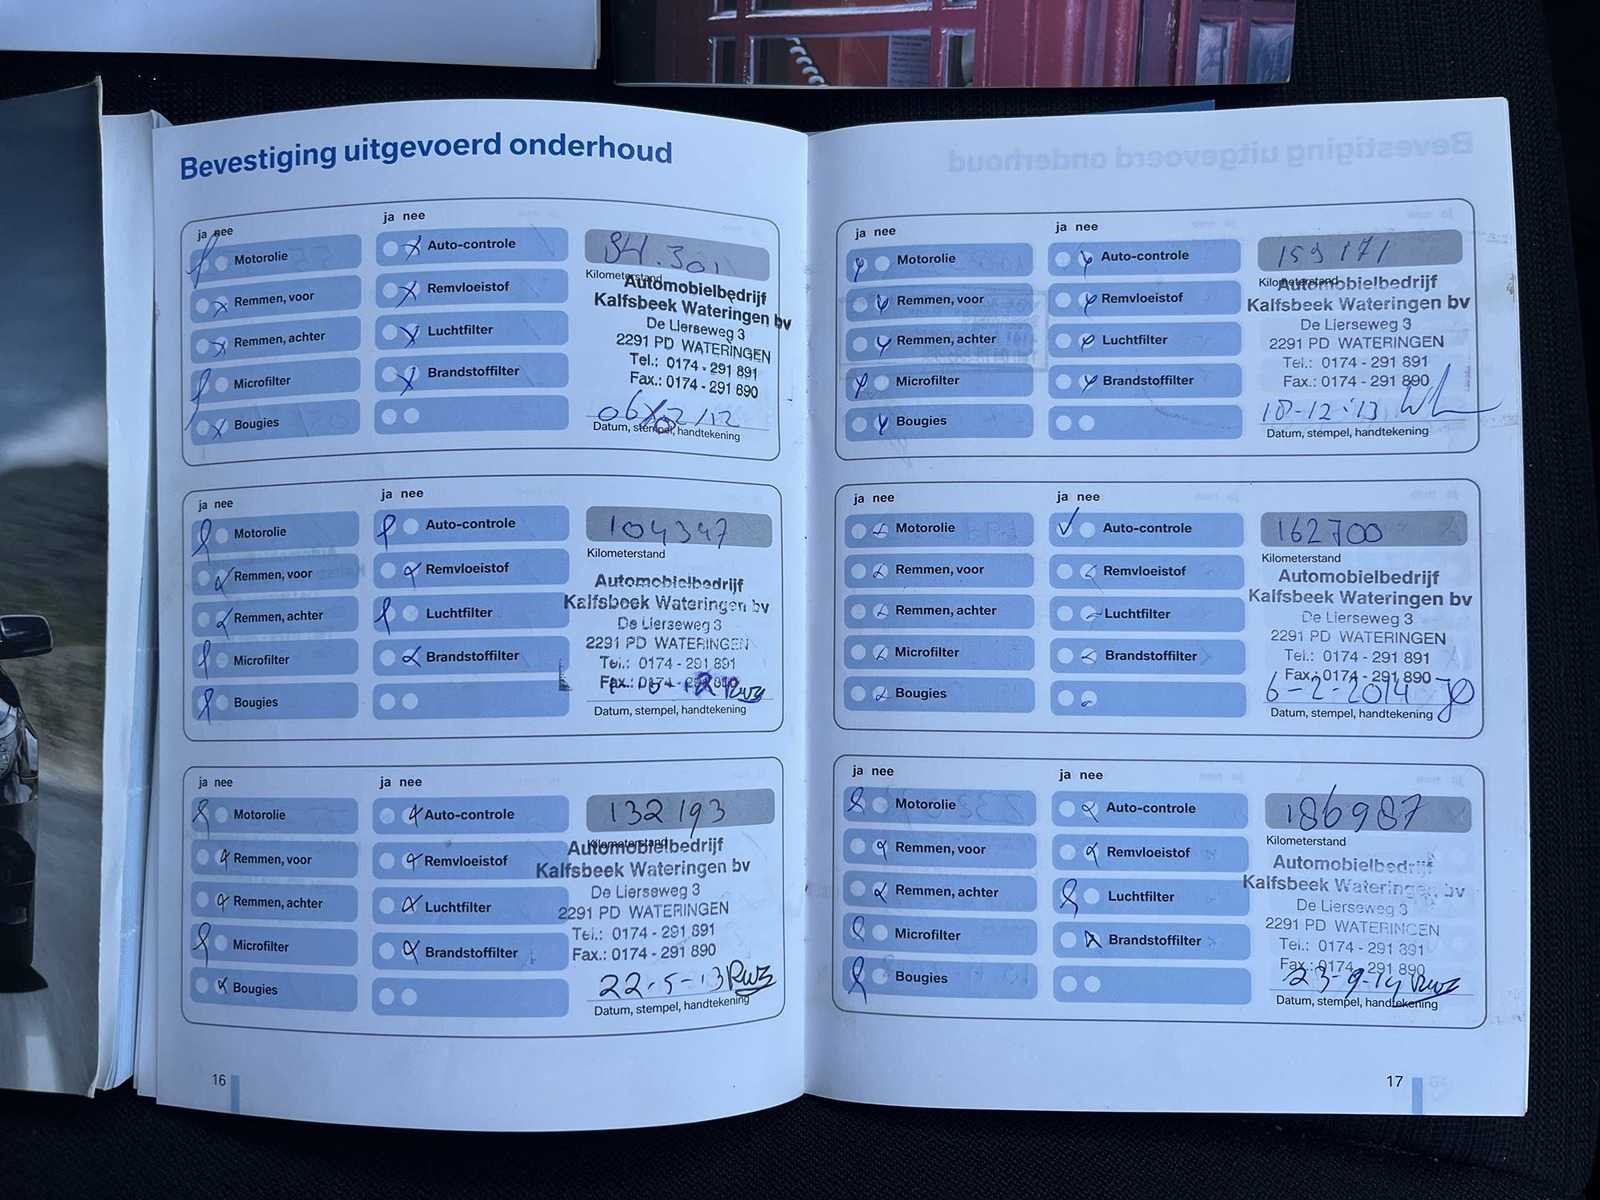 Bevestiging uitgevoerd onderhoud
ja nee
ja nee
Motorolie
Auto-controle
84.301
Kilometerstand
Remmen, voor
Remvloeistof
Automobielbedrijf
Kalfsbeek Wateringen bv
De Lierseweg 3
2291 PD WATERINGEN
Tel.: 0174 - 291 891
Fax.: 0174 - 291 890
Remmen, achter
Luchtfilter
Microfilter
Brandstoffilter
Bougies
06/02/12
Datum, stempel, handtekening
ja nee
ja nee
Motorolie
Auto-controle
104347
Kilometerstand
Remmen, voor
Remvloeistof
Automobielbedrijf
Kalfsbeek Wateringen bv
De Lierseweg 3
2291 PD WATERINGEN
Tel.: 0174 - 291 891
Fax.: 0174 - 291 890
Remmen, achter
Luchtfilter
Microfilter
Brandstoffilter
Bougies
Datum, stempel, handtekening
ja nee
ja nee
Motorolie
Auto-controle
132193
Kilometerstand
Remmen, voor
Remvloeistof
Automobielbedrijf
Kalfsbeek Wateringen bv
De Lierseweg 3
2291 PD WATERINGEN
Tel.: 0174 - 291 891
Fax.: 0174 - 291 890
Remmen, achter
Luchtfilter
Microfilter
Brandstoffilter
Bougies
22-5-13
Datum, stempel, handtekening
16
ja nee
ja nee
Motorolie
Auto-controle
159171
Kilometerstand
Remmen, voor
Remvloeistof
Automobielbedrijf
Kalfsbeek Wateringen bv
De Lierseweg 3
2291 PD WATERINGEN
Tel.: 0174 - 291 891
Fax.: 0174 - 291 890
Remmen, achter
Luchtfilter
Microfilter
Brandstoffilter
Bougies
Datum, stempel, handtekening
ja nee
ja nee
Motorolie
Auto-controle
162700
Kilometerstand
Remmen, voor
Remvloeistof
Automobielbedrijf
Kalfsbeek Wateringen bv
De Lierseweg 3
2291 PD WATERINGEN
Tel.: 0174 - 291 891
Fax.: 0174 - 291 890
Remmen, achter
Luchtfilter
Microfilter
Brandstoffilter
Bougies
6-2-2014
Datum, stempel, handtekening
ja nee
ja nee
Motorolie
Auto-controle
186987
Kilometerstand
Remmen, voor
Remvloeistof
Automobielbedrijf
Kalfsbeek Wateringen bv
De Lierseweg 3
2291 PD WATERINGEN
Tel.: 0174 - 291 891
Fax.: 0174 - 291 890
Remmen, achter
Luchtfilter
Microfilter
Brandstoffilter
Bougies
23-9-14
Datum, stempel, handtekening
17